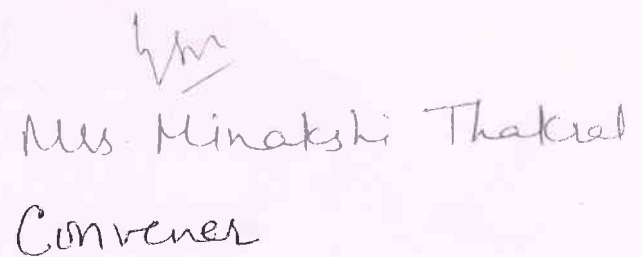 Mrs. Minakshi Thakral
Convener